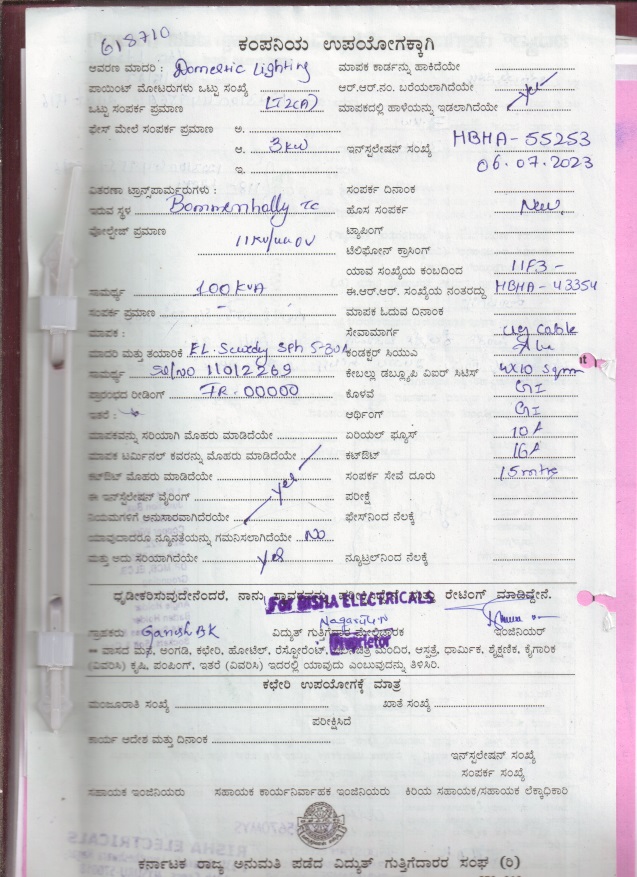 618710
ಕಂಪನಿಯ ಉಪಯೋಗಕ್ಕಾಗಿ
ಆವರಣ ಮಾದರಿ : Domestic Lighting ಮಾಪಕ ಕಾರ್ಡನ್ನು ಹಾಕಿದೆಯೇ
ಪಾಯಿಂಟ್ ಮೋಟರುಗಳು ಒಟ್ಟು ಸಂಖ್ಯೆ ಆರ್.ಆರ್.ನಂ. ಬರೆಯಲಾಗಿದೆಯೇ
ಒಟ್ಟು ಸಂಪರ್ಕ ಪ್ರಮಾಣ LT2(A) ಮಾಪಕದಲ್ಲಿ ಹಾಳೆಯನ್ನು ಇಡಲಾಗಿದೆಯೇ yes
ಫೇಸ್ ಮೇಲೆ ಸಂಪರ್ಕ ಪ್ರಮಾಣ ಅ.
ಆ. 3KW ಇನ್‌ಸ್ಟಲೇಷನ್ ಸಂಖ್ಯೆ HBHA-55253
ಇ. 06.07.2023
ವಿತರಣಾ ಟ್ರಾನ್ಸ್‌ಪಾರ್ಮರುಗಳು : ಸಂಪರ್ಕ ದಿನಾಂಕ
ಇರುವ ಸ್ಥಳ Bommenhally TC ಹೊಸ ಸಂಪರ್ಕ New
ವೋಲ್ಟೇಜ್ ಪ್ರಮಾಣ 11KV/440V ಟ್ಯಾಪಿಂಗ್
ಟೆಲಿಫೋನ್ ಕ್ರಾಸಿಂಗ್
ಯಾವ ಸಂಖ್ಯೆಯ ಕಂಬದಿಂದ 11F3 -
ಸಾಮರ್ಥ್ಯ 100KVA ಈ.ಆರ್.ಆರ್. ಸಂಖ್ಯೆಯ ನಂತರದ್ದು HBHA-43354
ಸಂಪರ್ಕ ಪ್ರಮಾಣ - ಮಾಪಕ ಓದುವ ದಿನಾಂಕ
ಮಾಪಕ : ಸೇವಾಮಾರ್ಗ ug cable
ಮಾದರಿ ಮತ್ತು ತಯಾರಿಕೆ EL. Sph 5-30A ಕಂಡಕ್ಟರ್ ಸಿಯುಎ
ಸಾಮರ್ಥ್ಯ Sl/NO 11012269 ಕೇಬಲ್ಲು ಡಬ್ಲ್ಯೂಪಿ ವಿಐರ್ ಸಿಟಿಸ್ 4X10 Sqmm
ಪ್ರಾರಂಭದ ರೀಡಿಂಗ್ FR-00000 ಕೊಳವೆ GI
ಇತರೆ : ಆರ್ಥಿಂಗ್ GI
ಮಾಪಕವನ್ನು ಸರಿಯಾಗಿ ಮೊಹರು ಮಾಡಿದೆಯೇ ಏರಿಯಲ್ ಫ್ಯೂಸ್ 10A
ಮಾಪಕ ಟರ್ಮಿನಲ್ ಕವರನ್ನು ಮೊಹರು ಮಾಡಿದೆಯೇ ಕಟ್‌ಔಟ್ 16A
ಕಟ್‌ಔಟ್ ಮೊಹರು ಮಾಡಿದೆಯೇ yes ಸಂಪರ್ಕ ಸೇವೆ ದೂರು 15mtrs
ಈ ಇನ್‌ಸ್ಟಲೇಷನ್ ವೈರಿಂಗ್ ಪರೀಕ್ಷೆ
ನಿಯಮಗಳಿಗೆ ಅನುಸಾರವಾಗಿದೆರಯೇ ಫೇಸ್‌ನಿಂದ ನೆಲಕ್ಕೆ
ಯಾವುದಾದರೂ ನ್ಯೂನತೆಯನ್ನು ಗಮನಿಸಲಾಗಿದೆಯೇ No
ಮತ್ತು ಅದು ಸರಿಯಾಗಿದೆಯೇ yes ನ್ಯೂಟ್ರಲ್‌ನಿಂದ ನೆಲಕ್ಕೆ
ಧೃಡೀಕರಿಸುವುದೇನೆಂದರೆ, ನಾನು ಮತ್ತು ರೇಟಿಂಗ್ ಮಾಡಿದ್ದೇನೆ.
For RISHA ELECTRICALS
ಗ್ರಾಹಕರು Ganesh BK ವಿದ್ಯುತ್ ಗುತ್ತಿಗೆದಾರ ಮೇಲ್ವಿಚಾರಕ ಇಂಜಿನಿಯರ್
Proprietor
** ವಾಸದ ಮನೆ, ಅಂಗಡಿ, ಕಛೇರಿ, ಹೋಟೆಲ್, ರೆಸ್ಟೋರೆಂಟ್, ಮಂದಿರ, ಆಸ್ಪತ್ರೆ, ಧಾರ್ಮಿಕ, ಶೈಕ್ಷಣಿಕ, ಕೈಗಾರಿಕ
(ವಿವರಿಸಿ) ಕೃಷಿ, ಪಂಪಿಂಗ್, ಇತರೆ (ವಿವರಿಸಿ) ಇದರಲ್ಲಿ ಯಾವುದು ಎಂಬುವುದನ್ನು ತಿಳಿಸಿರಿ.
ಕಛೇರಿ ಉಪಯೋಗಕ್ಕೆ ಮಾತ್ರ
ಮಂಜೂರಾತಿ ಸಂಖ್ಯೆ ಖಾತೆ ಸಂಖ್ಯೆ
ಪರೀಕ್ಷಿಸಿದೆ
ಕಾರ್ಯ ಆದೇಶ ಮತ್ತು ದಿನಾಂಕ
ಇನ್‌ಸ್ಟಲೇಷನ್ ಸಂಖ್ಯೆ
ಸಂಪರ್ಕ ಸಂಖ್ಯೆ
ಸಹಾಯಕ ಇಂಜಿನಿಯರು ಸಹಾಯಕ ಕಾರ್ಯನಿರ್ವಾಹಕ ಇಂಜಿನಿಯರು ಕಿರಿಯ ಸಹಾಯಕ/ಸಹಾಯಕ ಲೆಕ್ಕಾಧಿಕಾರಿ
ಕರ್ನಾಟಕ ರಾಜ್ಯ ಅನುಮತಿ ಪಡೆದ ವಿದ್ಯುತ್ ಗುತ್ತಿಗೆದಾರರ ಸಂಘ (ರಿ)